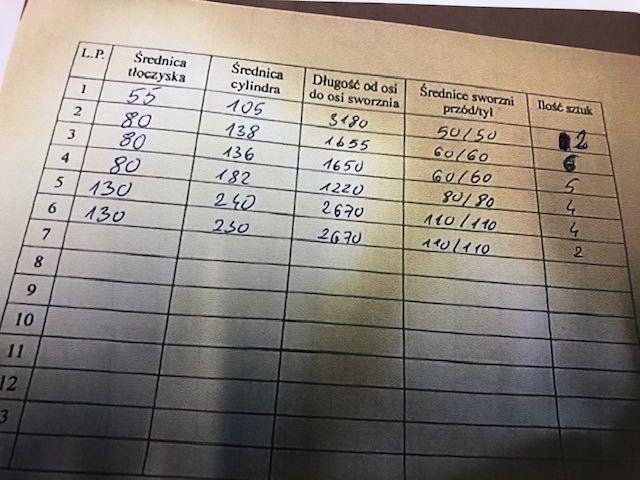 L.P. Średnica tłoczyska Średnica cylindra Długość od osi do osi sworznia Średnice sworzni przód/tył Ilość sztuk
1 55 105 3180 50/50 2
2 80 138 1655 60/60 6
3 80 136 1650 60/60 5
4 80 182 1220 80/80 4
5 130 240 2670 110/110 4
6 130 230 2670 110/110 2
7
8
9
10
11
12
3